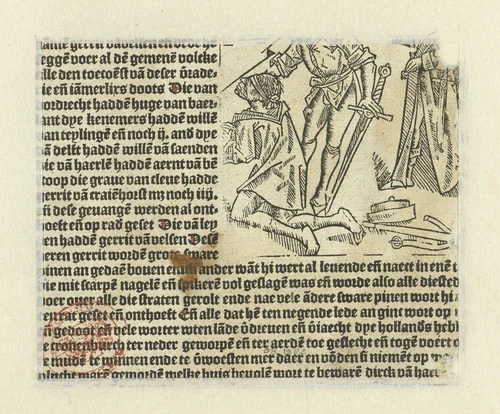 eggē voer al dē gemenē volcke
alle den toecoēst vā deser ōrade-
ie eñ iāmerlijcs doots Die van
ordrecht haddē huge van baer-
ant dye kenemers haddē willē
an teylingē eñ noch ij. and dye
ā delft haddē willē vā saenden
ie vā haerlē haddē aernt vā bē
coop die graue van cleue hadde
gerrit vā craiēhorst mz noch iiij.
ñ dese geuangē werden al ont-
hoeft eñ op rad geset Die vā ley
en haddē gerrit vā velsen Dese
heren gerrit wordē groz sware
pinen an gedaē bouen ander wāt hi wert al leuende eñ naect in enē t
die mit scarpē nagelē eñ spikerē vol geslagē was eñ worde also alle die sted
oer ouer alle die straten gerolt ende nae vele ādere sware pinen wort hi
en rat geset eñ onthoeft Eñ alle dat hē ten negende lede an ginc wort op
ñ gedoot eñ vele worter wten lāde ōdreuen eñ ōiaecht dye hollandꝭ heb
e cronenburch ter neder geworpē eñ ter aerdē toe geslecht eñ togē voert
r mudē te winnen ende te ōwoesten mer daer en vōden si niemēt op w
slecht marē gemordē welke huis beuolē wort te bewarē dirck vā haer